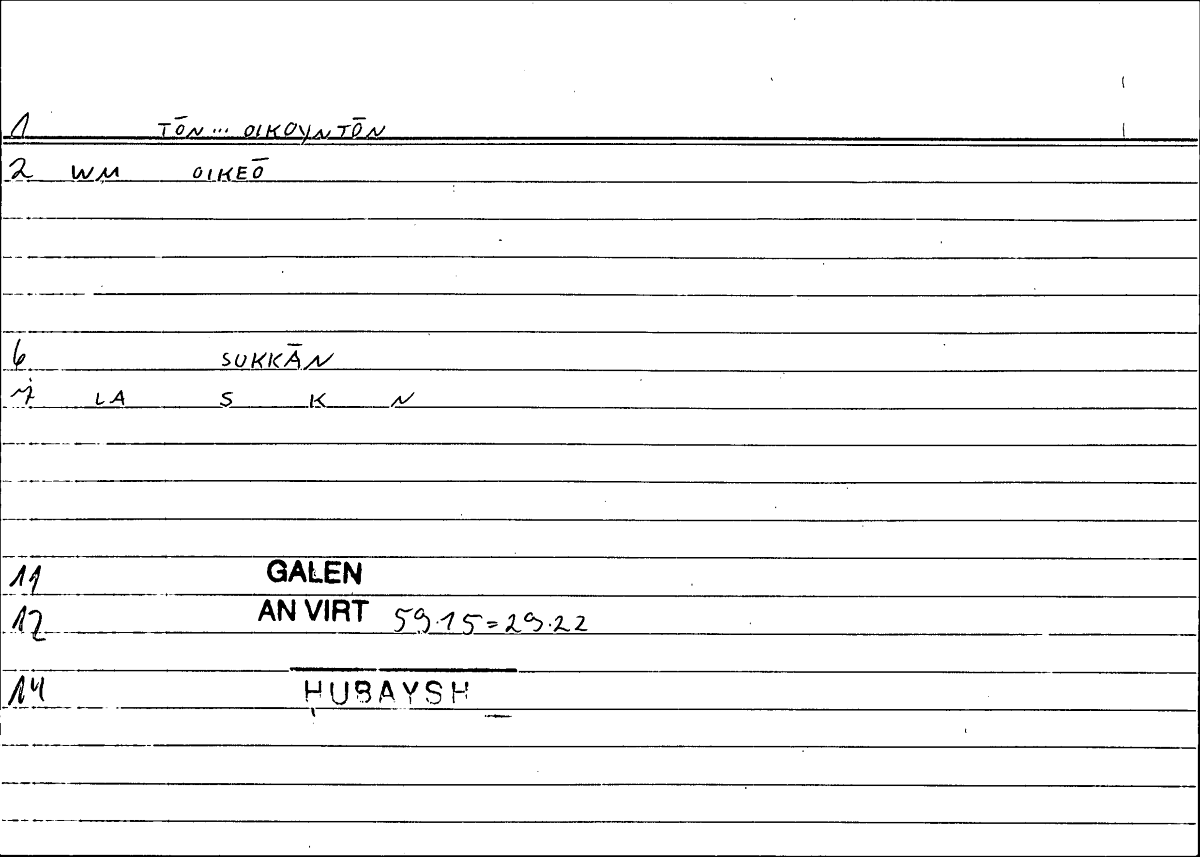 1 TŌN... OIKOYNTŌN
2 WM OIKEŌ
6 SUKKĀN
7 LA S K N
11 GALEN
12 AN VIRT 59.15=29.22
14 ḤUBAYSH